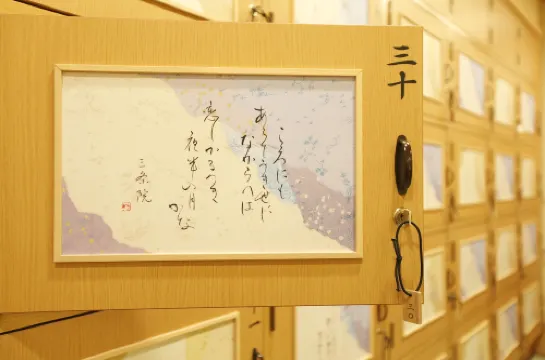 三十
こころにも
あらてうき世に
なからへは
恋しかるへき
夜半の月かな
三条院
三〇